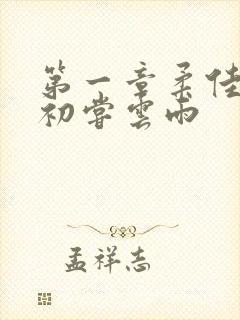 第一章柔佳
初尝雲雨
孟祥志